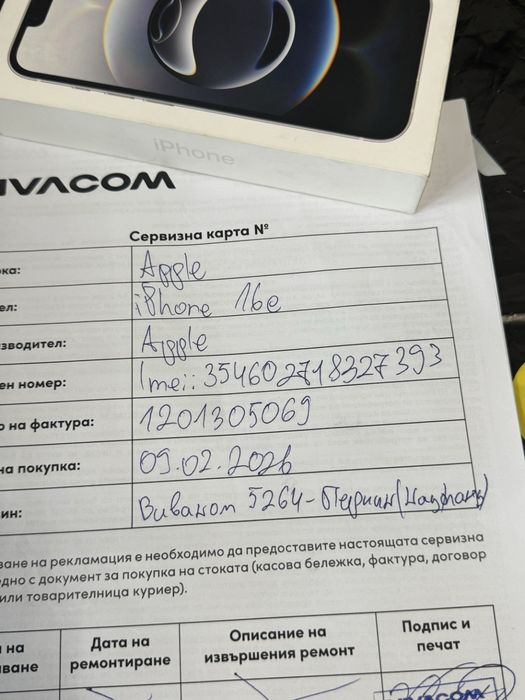 iPhone
IVACOM
Сервизна карта №
ка: Apple
ел: iPhone 16e
зводител: Apple
ен номер: Imei: 354602718327393
о на фактура: 1201305069
на покупка: 09.02.2026
ин: Виваком 5264-
ване на рекламация е необходимо да предоставите настоящата сервизна
едно с документ за покупка на стоката (касова бележка, фактура, договор
или товарителница куриер).
на
ване
Дата на
ремонтиране
Описание на
извършения ремонт
Подпис и
печат
VACOM